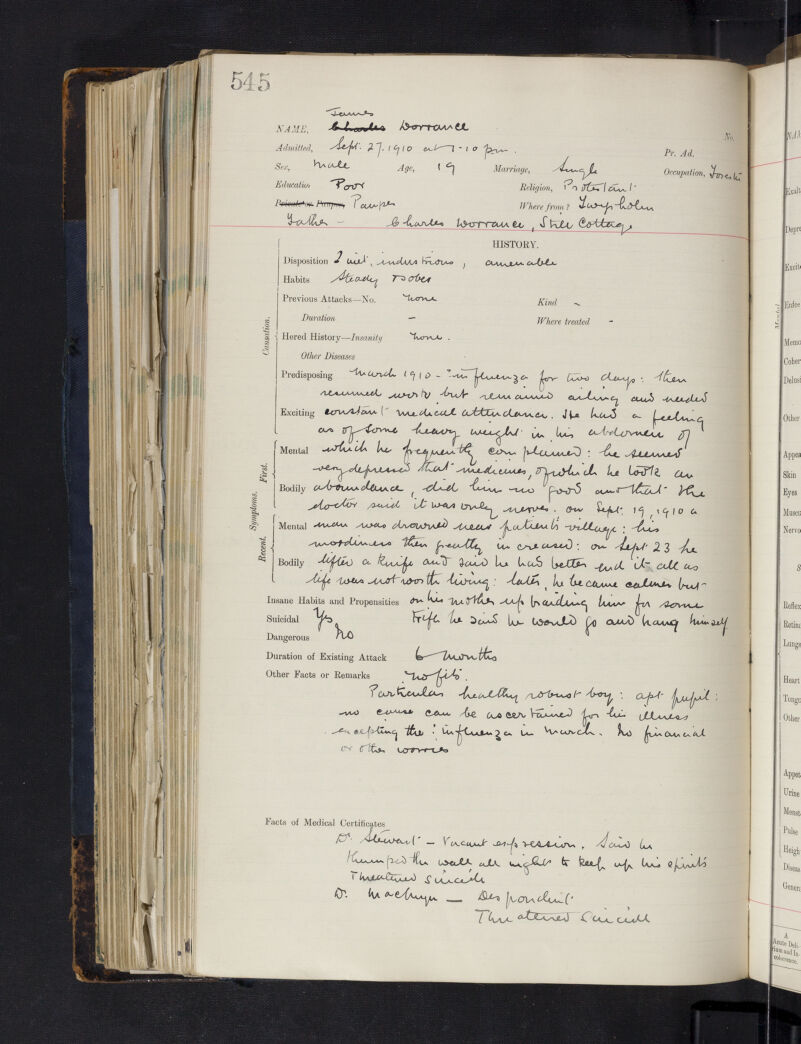 545
James
NAME, Charles Dorrance
No.
Admitted, Sept. 27. 1910 at 7-10 pm.
Pr. Ad.
Sex, Male Age, 19 Marriage, Single Occupation, Forester
Education Poor Religion, Protestant
Private or Pauper, Pauper Where from? Langholm
Father - Charles Dorrance, Still Cottage
HISTORY.
Disposition Quiet, industrious, amenable
Habits Steady & sober
Previous Attacks—No. none Kind ~
Duration - Where treated -
Hered History—Insanity none.
Other Diseases
Predisposing March 1910 - ? influenza for two days: then
resumed work but remained ailing and needed
Exciting constant medical attendance. He had a feeling
as of some heavy weight in his abdomen of
Mental which he frequently complained: he seemed
very depressed that medicines, of which he took an
Bodily abundance, did him no good and that the
doctor said it was only nerves. On Sept. 19, 1910 a
Mental man was drowned near patient's village: his
moodiness then greatly increased: on Sept 23 he
Bodily lifted a knife and said he had better end it all as
life was not worth living: later, he became calmer but
Insane Habits and Propensities on his mother upbraiding him for some
Suicidal Yes trifle he said he would go and hang himself
Dangerous No
Duration of Existing Attack 6 months
Other Facts or Remarks no fits.
Particular healthy robust boy: apt pupil:
no cause can be ascertained for his illness
excepting the ? influenza in March. No financial
or other worries
Facts of Medical Certificates
Dr. Stewart - Vacant expression. Said he
thumped the wall all night to keep up his spirits
Threatened suicide
Dr. — Despondent
Threatened Suicide
Causation.
Symptoms.
First.
Recent.
Mental
NA
Exalt
Depre
Excit
Enfee
Memo
Coher
Delus
Other
Appea
Skin
Eyes
Muscu
Nervo
S
Reflex
Retin
Lungs
Heart
Tongu
Other
Appet
Urine
Menst
Pulse
Heigh
Disea
Gener
A
Acute Deli-
rium and In-
coherence.